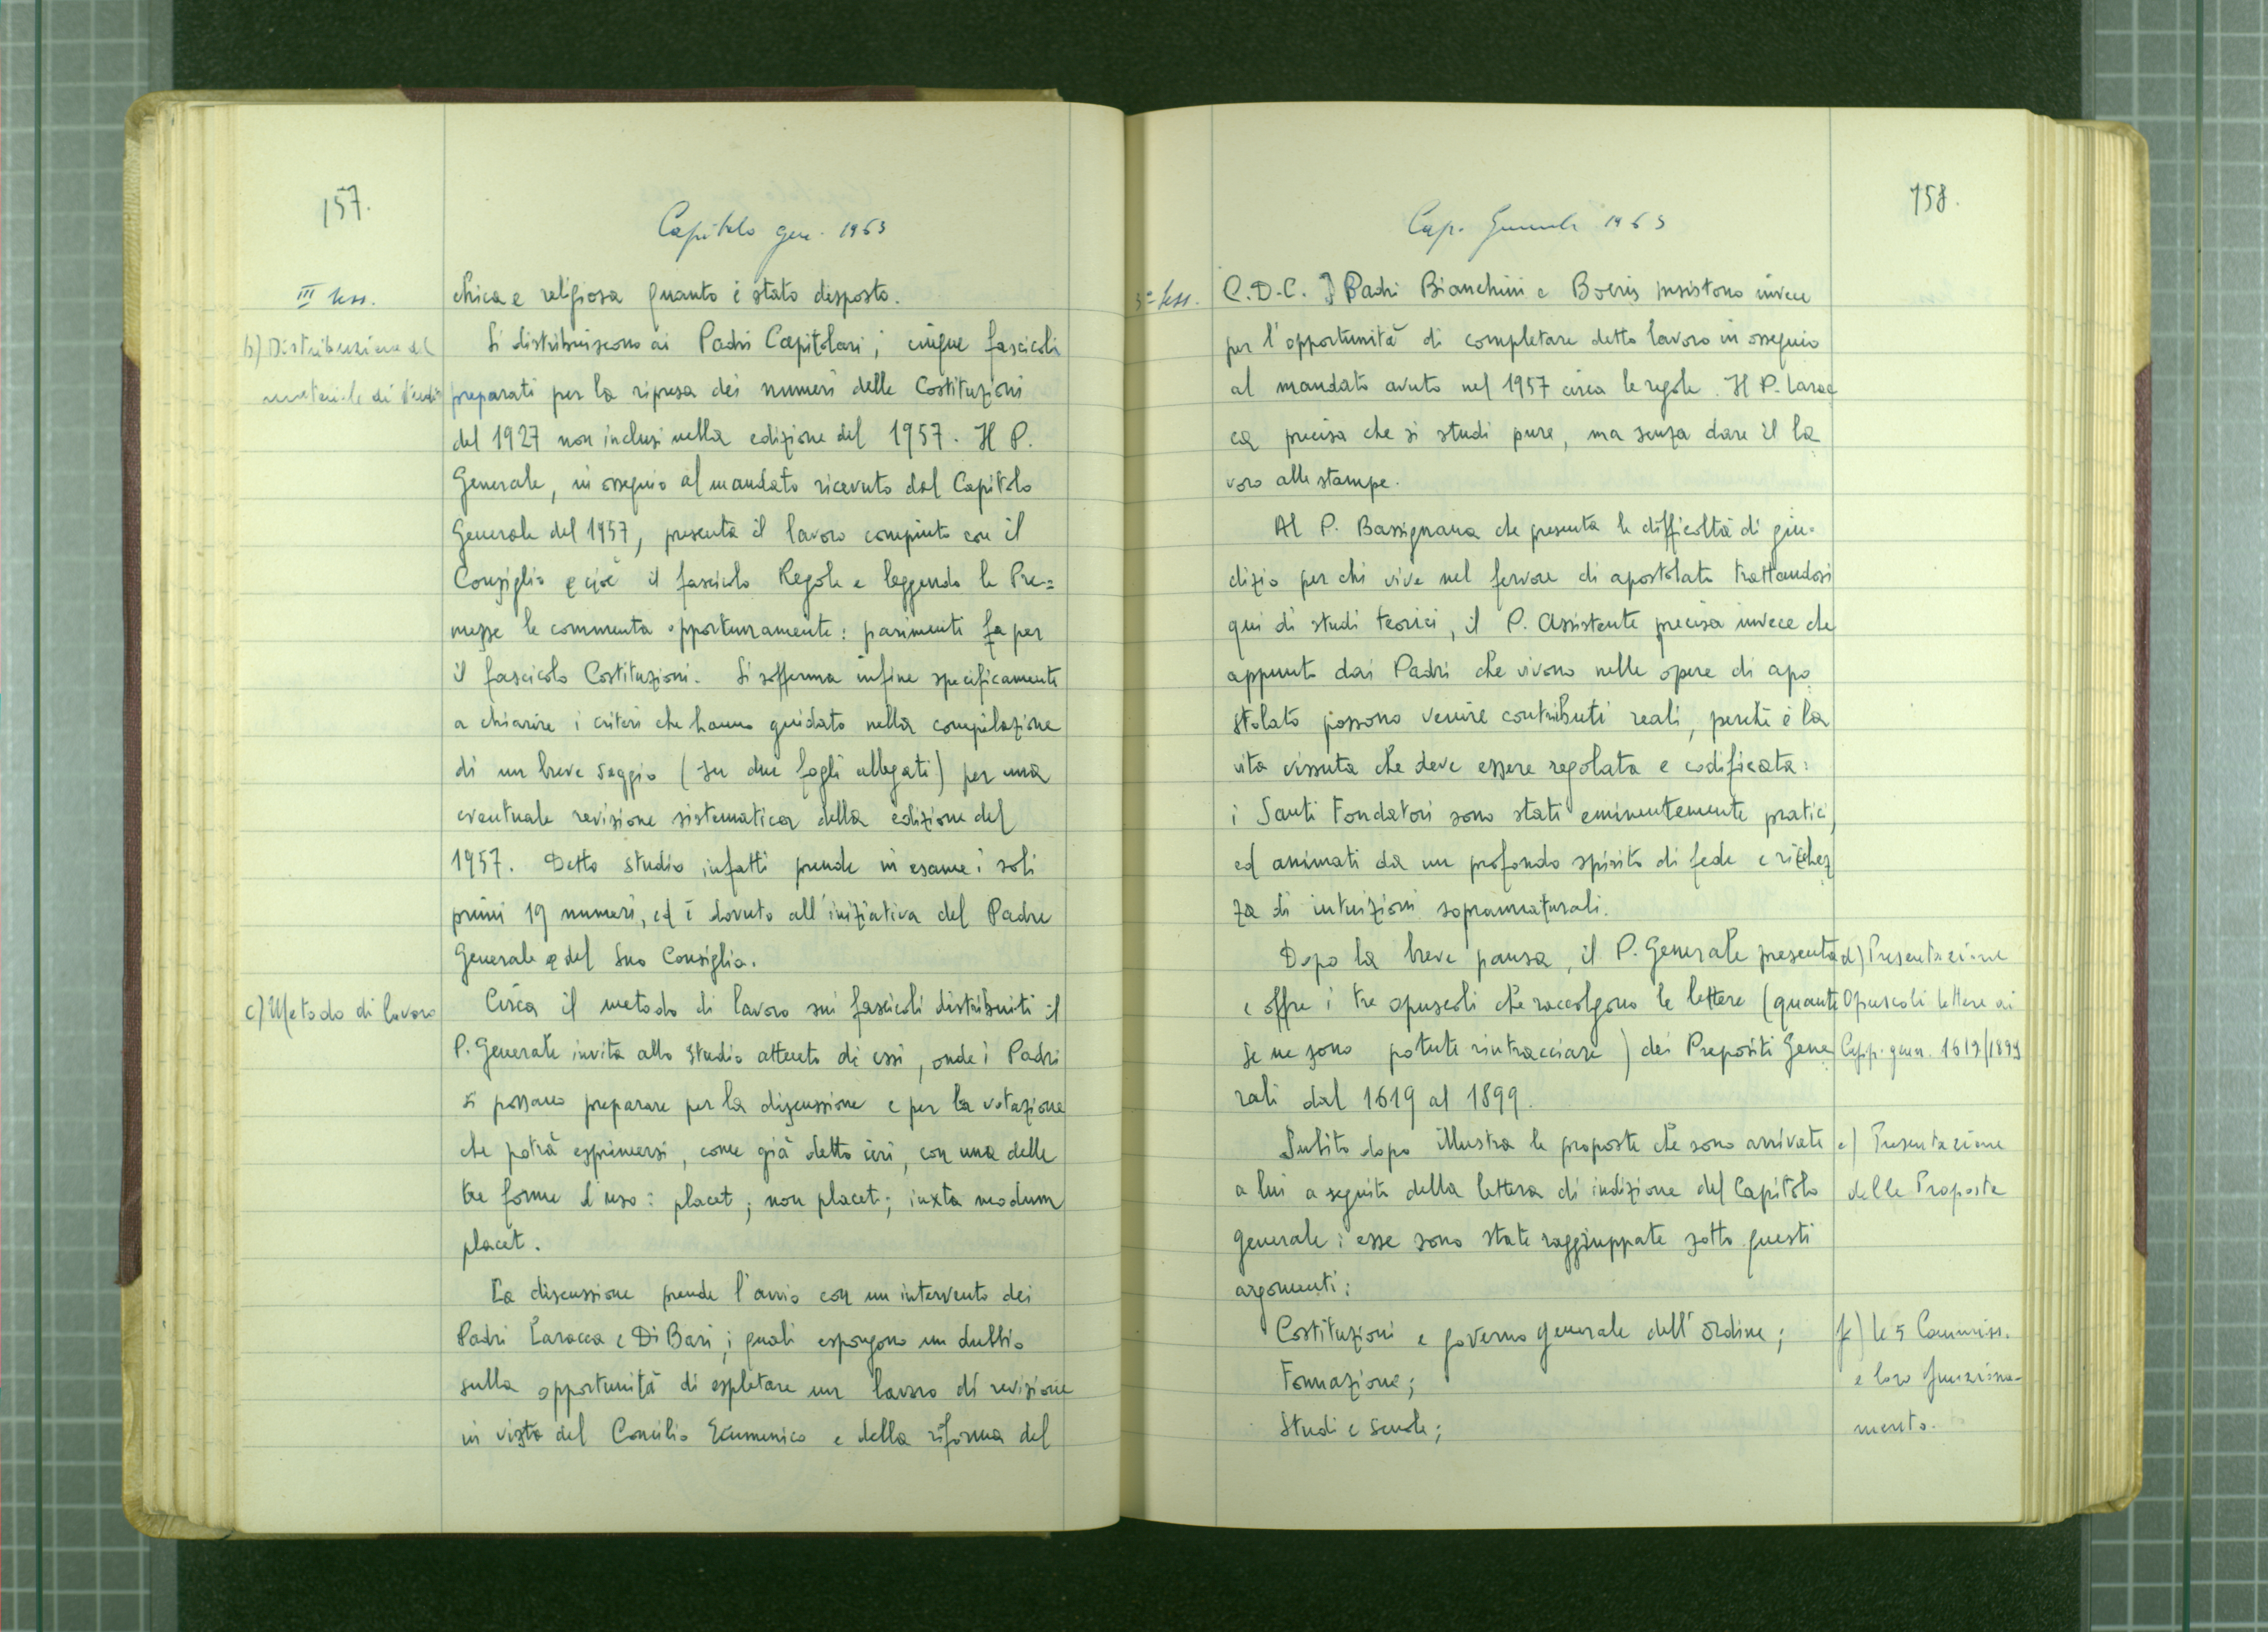 157.
Capitolo gen. 1963
III sess.
chica e religiosa quanto è stato disposto.
b) Distribuzione del
materiale di studio
Si distribuiscono ai Padri Capitolari i cinque fascicoli
preparati per la ripresa dei numeri delle Costituzioni
del 1927 non inclusi nella edizione del 1957. Il P.
Generale, in ossequio al mandato ricevuto dal Capitolo
Generale del 1957, presenta il lavoro compiuto con il
Consiglio e cioè il fascicolo Regole e leggendo le Pre=
messe le commenta opportunamente: parimenti fa per
il fascicolo Costituzioni. Si sofferma infine specificamente
a chiarire i criteri che hanno guidato nella compilazione
di un breve saggio (su due fogli allegati) per una
eventuale revisione sistematica della edizione del
1957. Detto studio infatti prende in esame i soli
primi 19 numeri, ed è dovuto all'iniziativa del Padre
Generale e del Suo Consiglio.
c) Metodo di lavoro
Circa il metodo di lavoro sui fascicoli distribuiti il
P. Generale invita allo studio attento di essi, onde i Padri
si possano preparare per la discussione e per la votazione
che potrà esprimersi, come già detto ieri, con una delle
tre forme d'uso: placet; non placet; iuxta modum
placet.
La discussione prende l'avvio con un intervento dei
Padri Laracca e Di Bari, i quali espongono un dubbio
sulla opportunità di espletare un lavoro di revisione
in vista del Concilio Ecumenico e della riforma del
158.
Cap. Generale 1963
3ª sess.
C.D.C. I Padri Bianchini e Boeris insistono invece
per l'opportunità di completare detto lavoro in ossequio
al mandato avuto nel 1957 circa le regole. Il P. Larac
ca precisa che si studi pure, ma senza dare il la
voro alle stampe.
Al P. Bassignana che presenta le difficoltà di giu-
dizio per chi vive nel fervore di apostolato trattandosi
qui di studi teorici, il P. Assistente precisa invece che
appunto dai Padri che vivono nelle opere di apo
stolato possono venire contributi reali, perchè è la
vita vissuta che deve essere regolata e codificata:
i Santi Fondatori sono stati eminentemente pratici,
ed animati da un profondo spirito di fede e ricchez
za di intuizioni soprannaturali.
Dopo la breve pausa, il P. Generale presenta
e offre i tre opuscoli che raccolgono le lettere (quante
se ne sono potute rintracciare) dei Prepositi Gene
rali dal 1619 al 1899.
d) Presentazione
Opuscoli lettere ai
Capp. gener. 1619/1899
Subito dopo illustra le proposte che sono arrivate
a lui a seguito della lettera di indizione del Capitolo
generale: esse sono state raggruppate sotto questi
argomenti:
e) Presentazione
delle Proposte
Costituzioni e governo generale dell'Ordine;
Formazione;
Studi e Scuole;
f) le 5 Commiss.
e loro funziona-
mento.